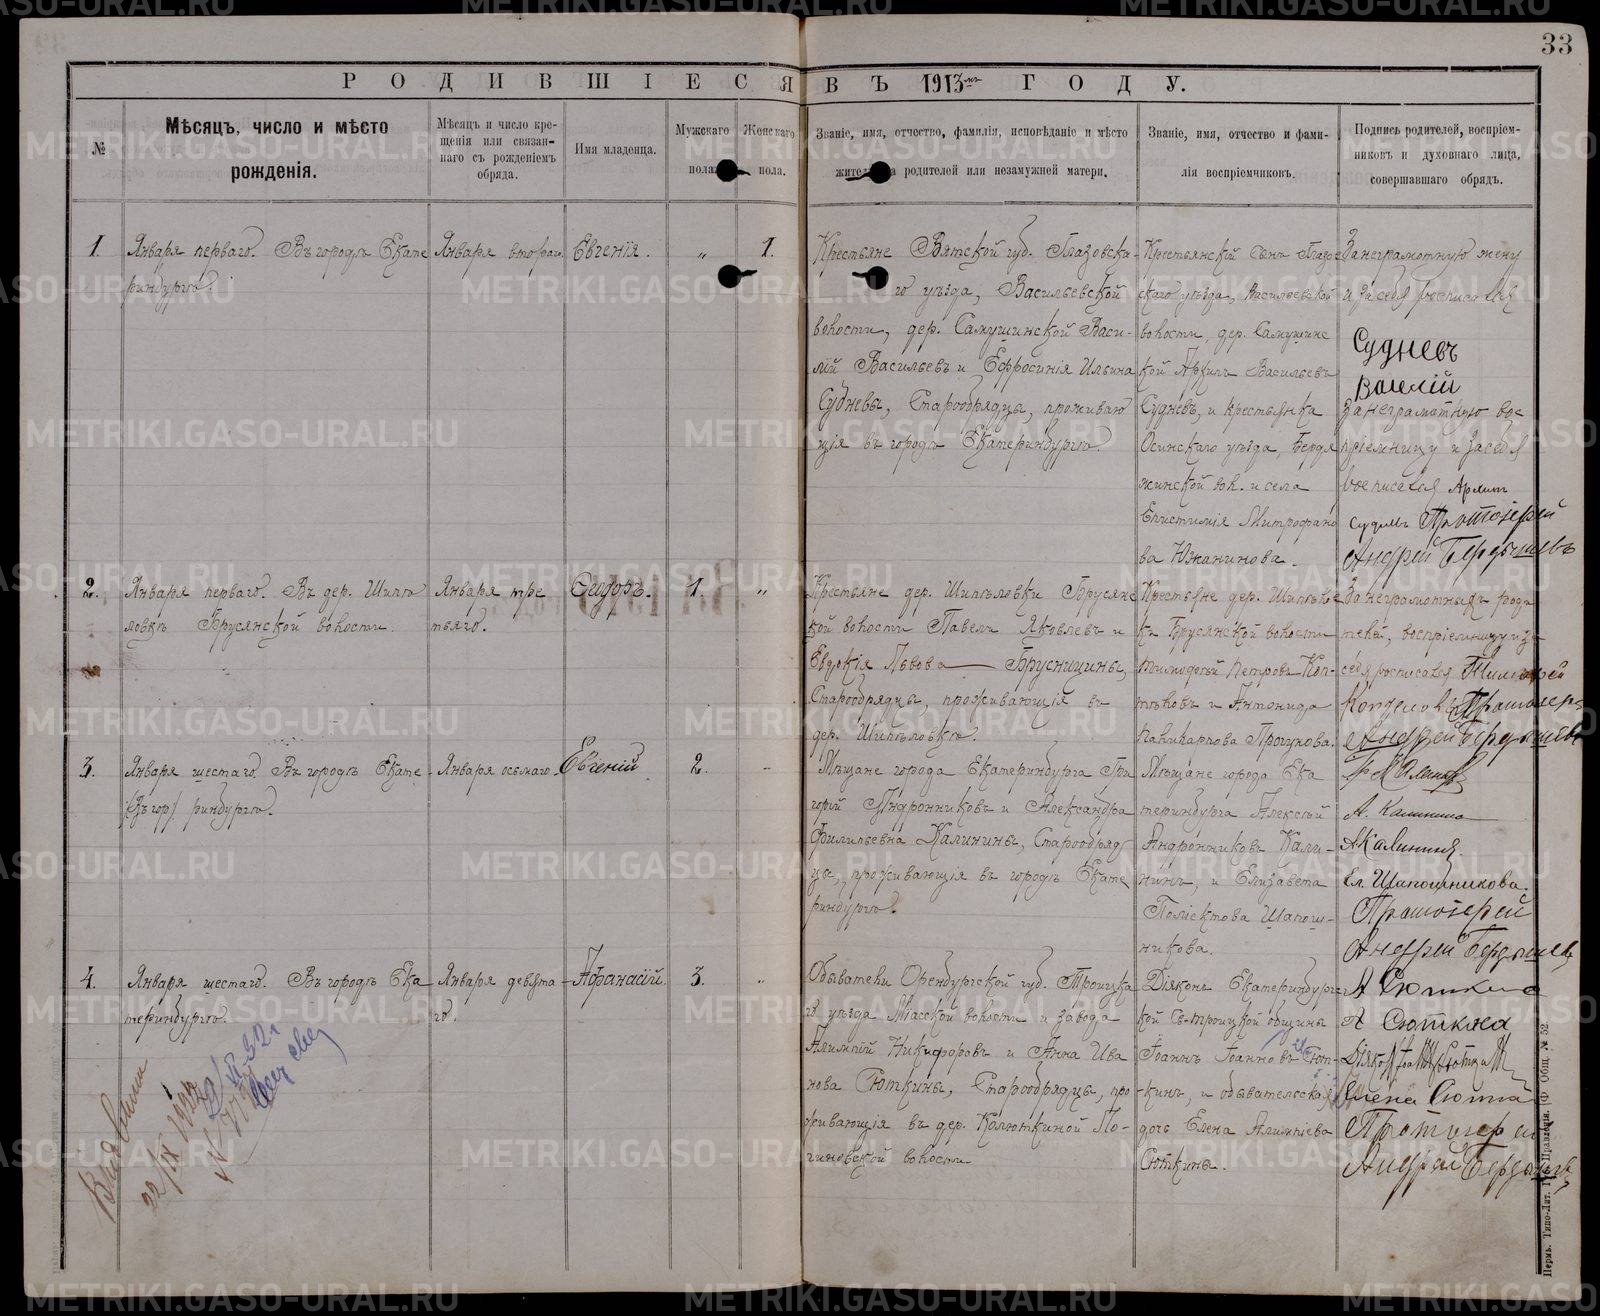 33
РОДИВШІЕСЯ ВЪ 1913мъ ГОДУ.
№
Мѣсяцъ, число и мѣсто
рожденія.
Мѣсяцъ и число кре-
щенія или связан-
наго съ рожденіемъ
обряда.
Имя младенца.
Мужскаго
пола.
Женскаго
пола.
Званіе, имя, отчество, фамилія, исповѣданіе и мѣсто
родителей или незамужней матери.
Званіе, имя, отчество и фами-
лія воспріемниковъ.
Подпись родителей, воспріем-
никовъ и духовнаго лица,
совершавшаго обрядъ.
1.
Января перваго. Въ городѣ Екате
ринбургѣ.
Января втораго.
Евгенія.
„
1.
Крестьяне Вятской губ. Глазовска-
го уѣзда, Васильевской
волости, дер. Самушинской Васи-
лій Васильевъ и Ефросинія Ильина
Судневы, Старообрядцы, проживаю
щія въ городѣ Екатеринбургѣ.
Крестьянскій сынъ Глазов
скаго уѣзда, Васильевской
волости, дер. Самушинс
кой Васильевъ
Судневъ, и крестьянка
Осинскаго уѣзда,
жинской вол. и села
Епистимія Митрофано
ва Южанинова.
За неграмотную жену
и за себя росписался
Судневъ
Василій
За неграмотную вос
пріемницу и за себя
росписался
Протоіерей
Андрей Бердышевъ
2.
Января перваго. Въ дер. Шипѣ
ловкѣ Брусянской волости
Января тре
тьяго.
Сидоръ.
1.
„
Крестьяне дер. Шипѣловки Брусянс
кой волости Павелъ Яковлевъ и
Евдокія Львова Брусницины,
Старообрядцы, проживающія въ
дер. Шипѣловкѣ.
Крестьяне дер. Шипѣлов
ки Брусянской волости
Тимофей Петровъ Коп-
тѣловъ и Антонида
Поликарпова Прогунова.
За неграмотныхъ роди
телей, воспріемницу и за
себя росписался Тимофей
Коптеловъ Протоіерей
Андрей Бердышевъ
3.
Января шестаго. Въ городѣ Екате
(Въ гор) ринбургѣ.
Января осьмаго.
Евгеній
2.
„
Мѣщане города Екатеринбурга Гри
горій Андронниковъ и Александра
Филипьевна Калинины, Старообряд
цы, проживающія въ городѣ Екате
ринбургѣ.
Мѣщане города Ека
теринбурга Алексѣй
Андронниковъ Кали-
нинъ, и Елизавета
Поліектова Шапош-
никова.
А. Калинина
А Калининъ.
Ел. Шапошникова.
Протоіерей
Андрей Бердышевъ
4.
Января шестаго. Въ городѣ Ека
теринбургѣ.
Января девята
го.
Афанасій.
3.
„
Обыватели Оренбургской губ. Троицка
го уѣзда Міасской волости и завода
Алимпій Никифоровъ и Анна Ива
нова Сюткины, Старообрядцы, про
живающія въ дер. Колюткиной Ло-
гиновской волости
Діяконъ Екатеринбургс
кой Св-троицкой общины
Іоаннъ Іоанновъ Сют-
кинъ, и обывательская
дочь Елена Алимпіева
Сюткины.
А Сюткинъ
А Сюткина
Діяконъ
Елена Сютки
Протоіерей
Андрей Бердышевъ
Пермь. Типо-Лит. Губ. Правленія. (Ф. Общ. № 52.
METRIKI.GASO-URAL.RU